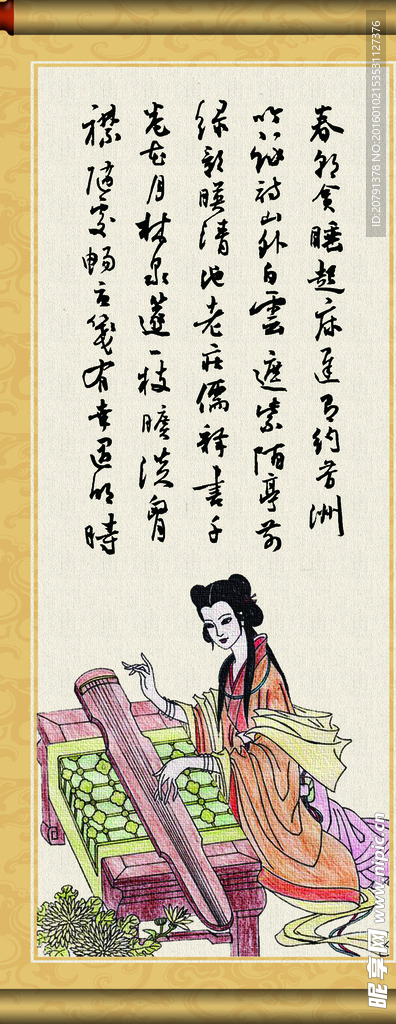 春朝貪睡起床遲有約芳洲
吟詩山外白雲遮紫陌亭前
绿影暎清池老莊儒釋書千
卷花月林泉一枝曠淡胸
襟隨處暢箋有幸遇明時
ID:20791378 NO:20160102153531127376
昵享网 www.nipic.cn